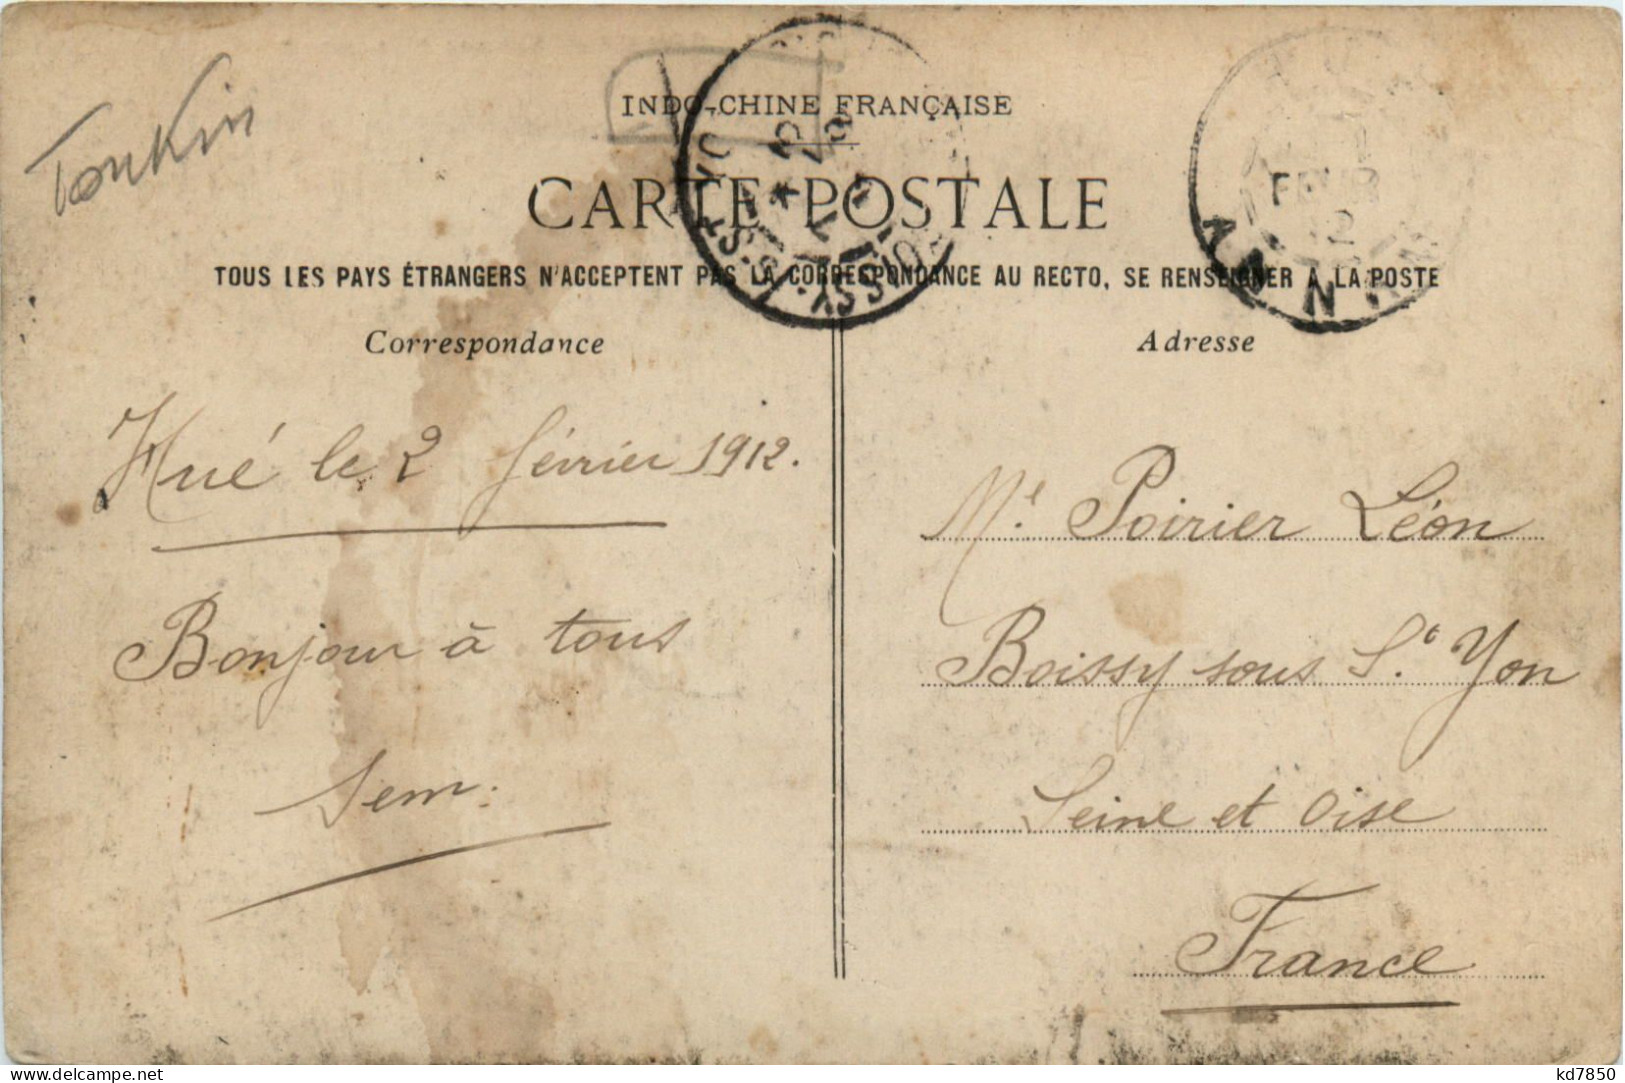 Tonkin
INDO-CHINE FRANÇAISE
CARTE POSTALE
TOUS LES PAYS ÉTRANGERS N'ACCEPTENT PAS LA CORRESPONDANCE AU RECTO, SE RENSEIGNER A LA POSTE
FEVR
12
ANNAM
BOISSY-S-ST-YON
Correspondance
Adresse
Hué le 2 février 1912.
Bonjour à tous
Sem.
Mr. Poirier Léon
Boissy sous St. Yon
Seine et Oise
France
kd7850